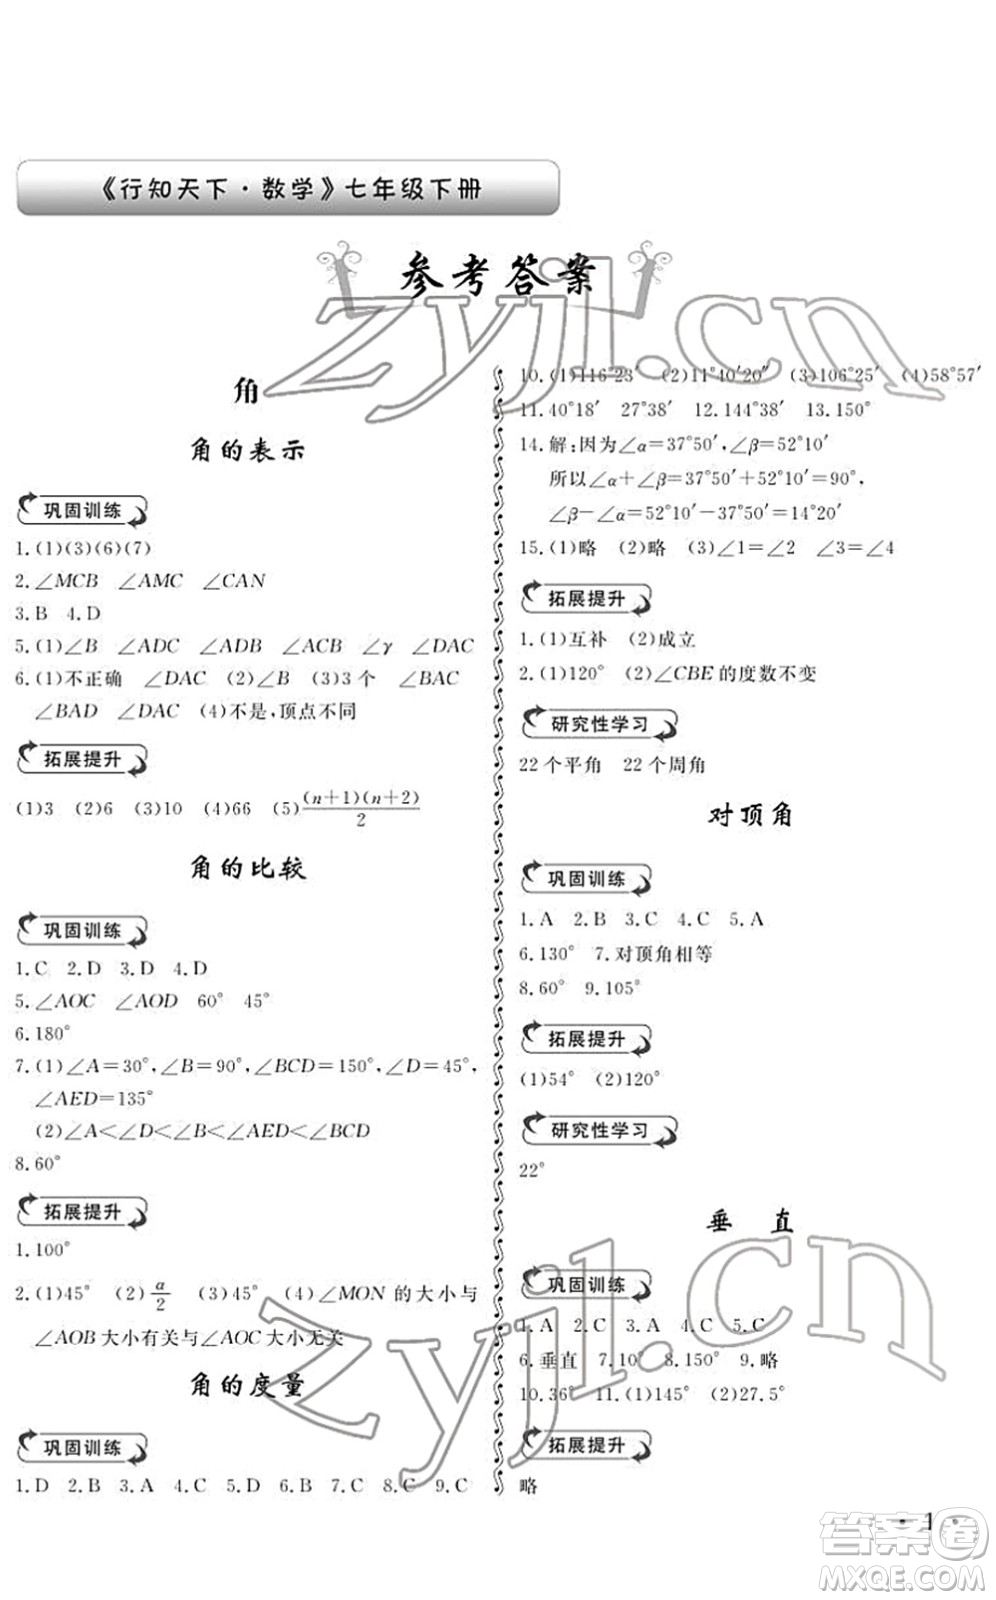 《行知天下·数学》七年级下册
参考答案
角
角的表示
巩固训练
1.(1)(3)(6)(7)
2.∠MCB ∠AMC ∠CAN
3.B 4.D
5.(1)∠B ∠ADC ∠ADB ∠ACB ∠γ ∠DAC
6.(1)不正确 ∠DAC (2)∠B (3)3个 ∠BAC
∠BAD ∠DAC (4)不是,顶点不同
拓展提升
(1)3 (2)6 (3)10 (4)66 (5)(n+1)(n+2)/2
角的比较
巩固训练
1.C 2.D 3.D 4.D
5.∠AOC ∠AOD 60° 45°
6.180°
7.(1)∠A=30°,∠B=90°,∠BCD=150°,∠D=45°,
∠AED=135°
(2)∠A<∠D<∠B<∠AED<∠BCD
8.60°
拓展提升
1.100°
2.(1)45° (2)α/2 (3)45° (4)∠MON的大小与
∠AOB大小有关与∠AOC大小无关
角的度量
巩固训练
1.D 2.B 3.C 4.C 5.D 6.B 7.C 8.C 9.C
10.(1)116°23′ (2)11°40′20″ (3)106°25′ (4)58°57′
11.40°18′ 27°38′ 12.144°38′ 13.150°
14.解:因为∠α=37°50′,∠β=52°10′
所以∠α+∠β=37°50′+52°10′=90°,
∠β-∠α=52°10′-37°50′=14°20′
15.(1)略 (2)略 (3)∠1=∠2 ∠3=∠4
拓展提升
1.(1)互补 (2)成立
2.(1)120° (2)∠CBE的度数不变
研究性学习
22个平角 22个周角
对顶角
巩固训练
1.A 2.B 3.C 4.C 5.A
6.130° 7.对顶角相等
8.60° 9.105°
拓展提升
(1)54° (2)120°
研究性学习
22°
垂 直
巩固训练
1.A 2.C 3.C 4.C 5.C
6.垂直 7.10° 8.150° 9.略
10.36° 11.(1)145° (2)27.5°
拓展提升
略
· 1 ·
zyjl.cn
zyjl.cn
答案圈
MXQE.COM